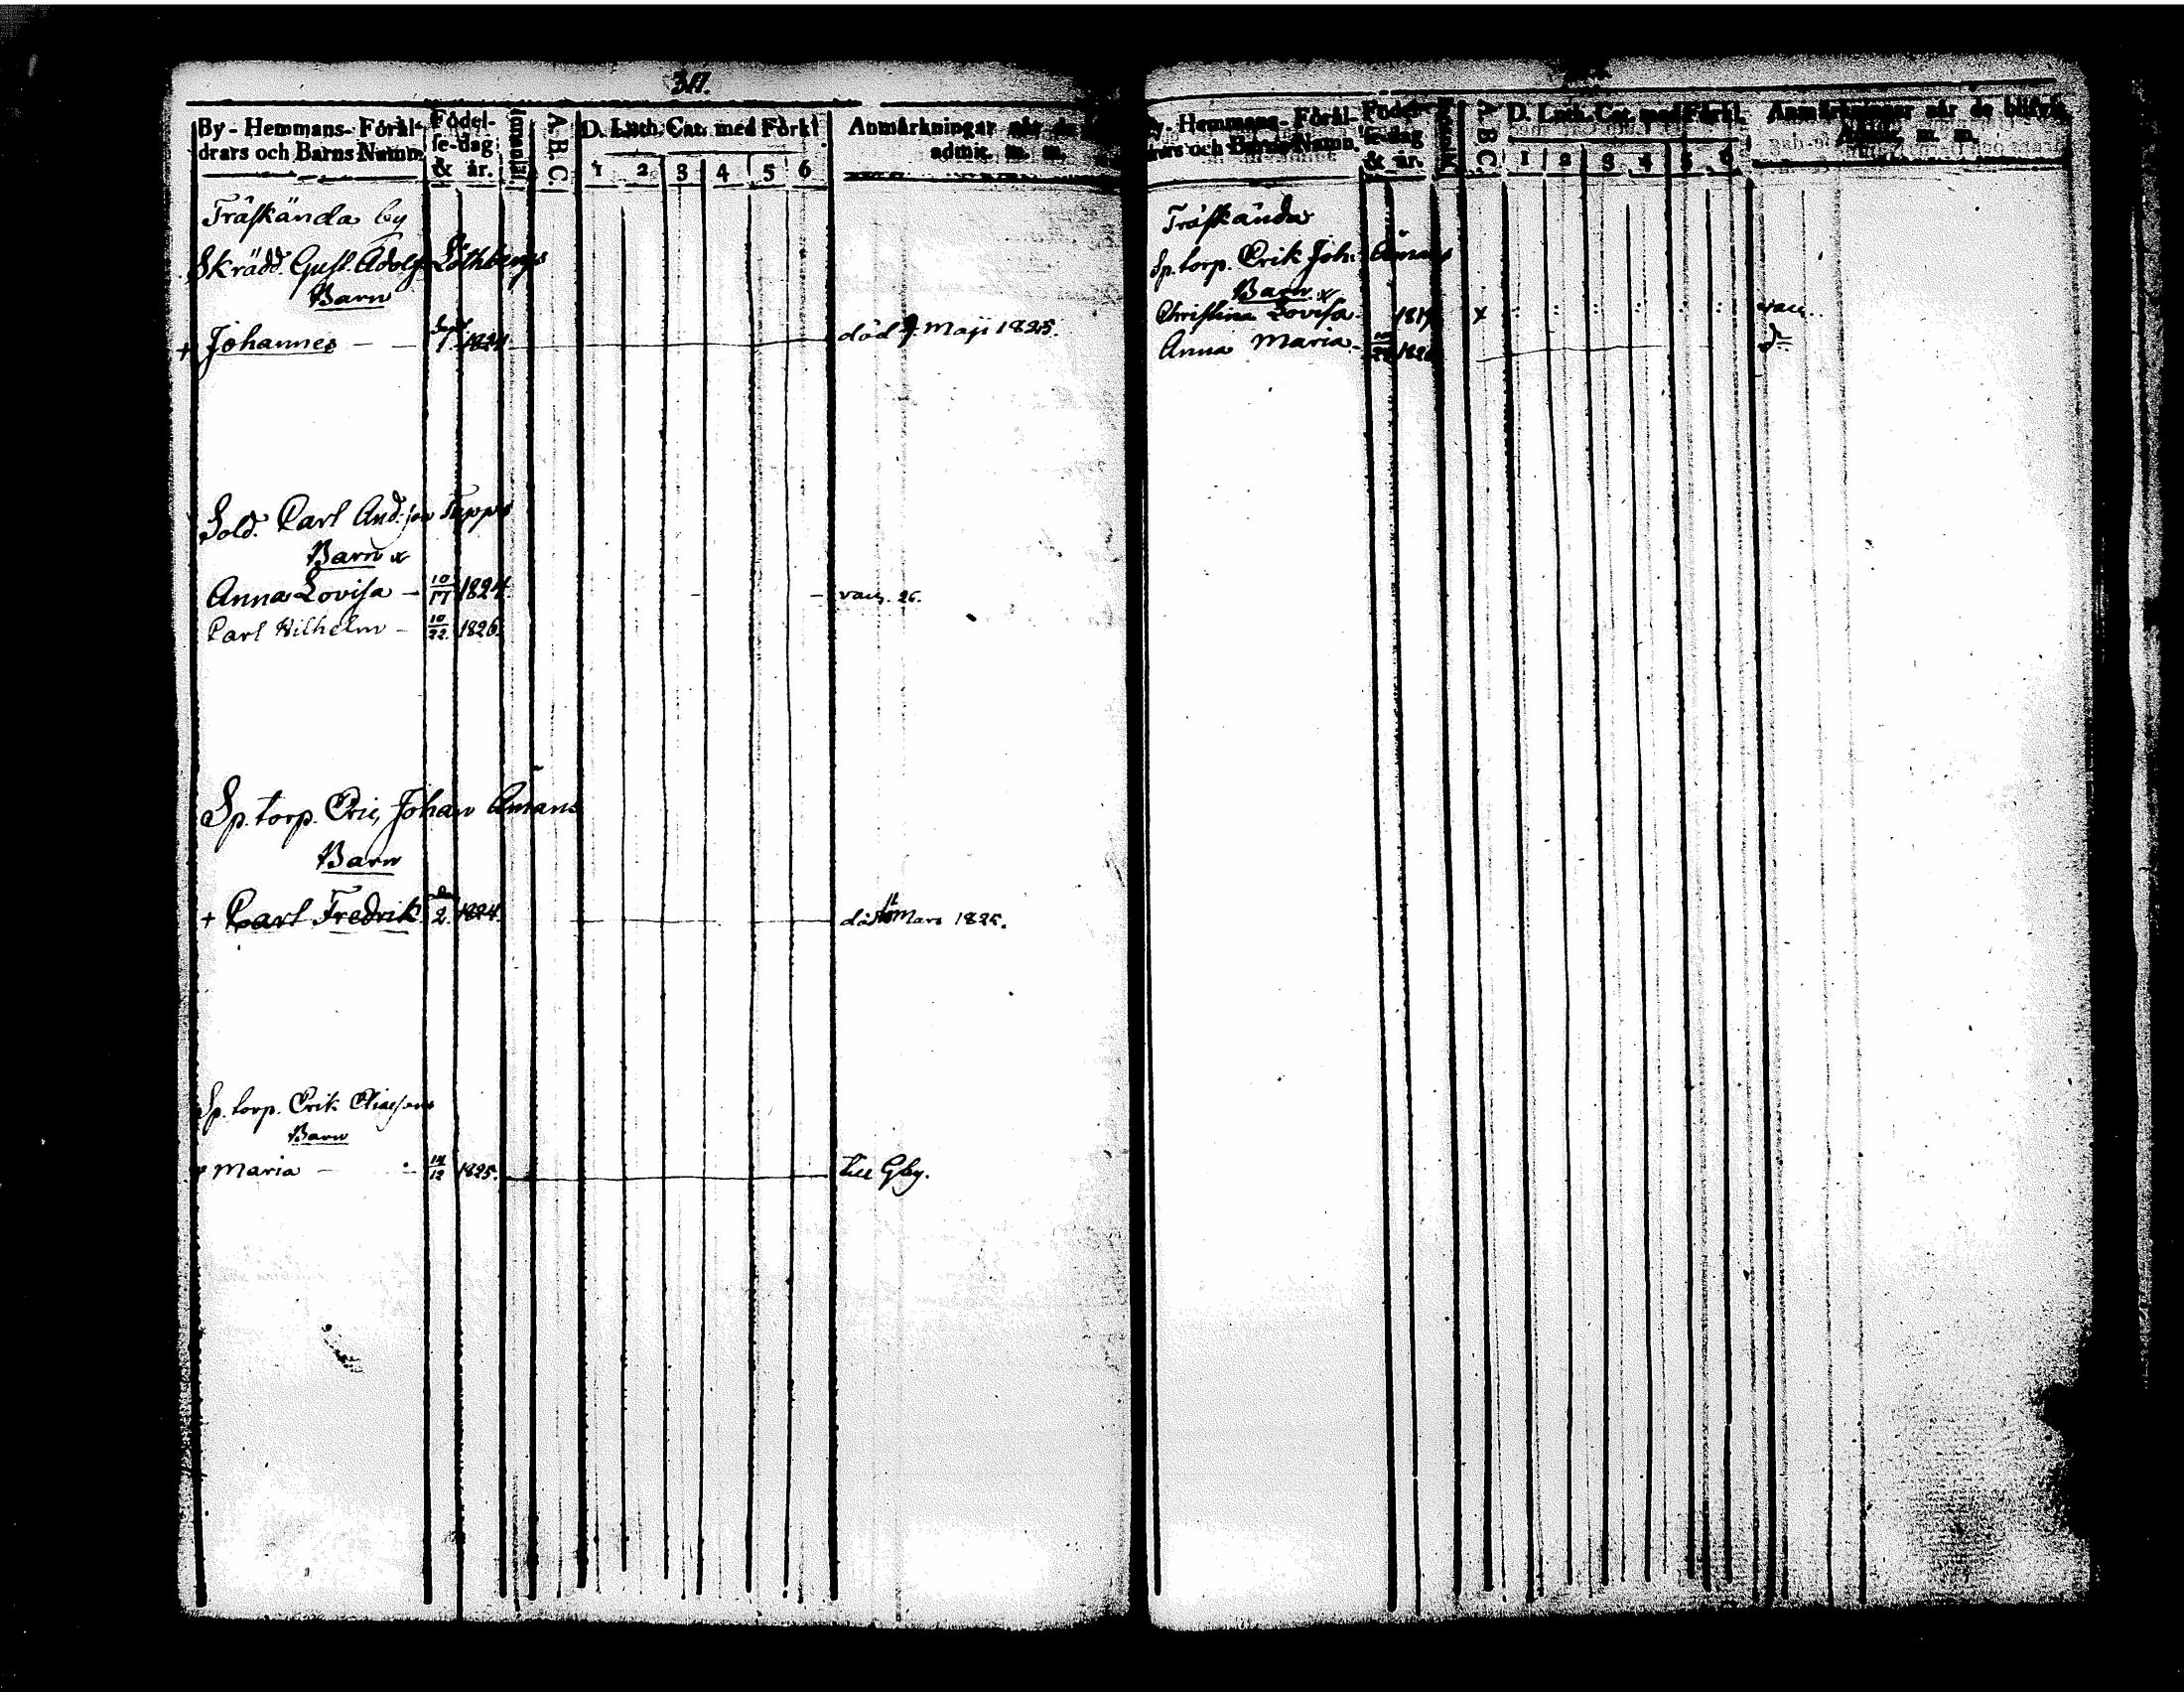 317.
By- Hemmans- Föräl-
drars och Barns Namn.
Födel-
se-dag
& år.
A.B.C.
D. Luth. Cat. med Förkl.
1 2 3 4 5 6
Anmärkningar når de
admit. m. m.
Träskända by
Skrädd. Gust. Adolf Löthbergs
Barn
+ Johannes — — Sept. 7. 1824 död 9 Maji 1825.
Sold. Carl And:son Tapps
Barn x
Anna Lovisa — 10/17 1824. vacc. 26.
Carl Wilhelm — 10/22 1826.
Sp. torp. Eric Johan Åmans
Barn
+ Carl Fredrik 2. 1824. död Mars 1825.
Sp. torp. Erik Eliaesons
Barn
Maria — 14/12 1825. till Gby.
By- Hemmans- Föräl-
drars och Barns Namn.
Födel-
se-dag
& år.
A.B.C.
D. Luth. Cat. med Förkl.
1 2 3 4 5 6
Anmärkningar når de blifvit
m. m.
Träskända
Sp. torp. Erik Joh: Åmans
Barn x
Christina Lovisa 1819 x : : : : : : vacc.
Anna Maria d:o